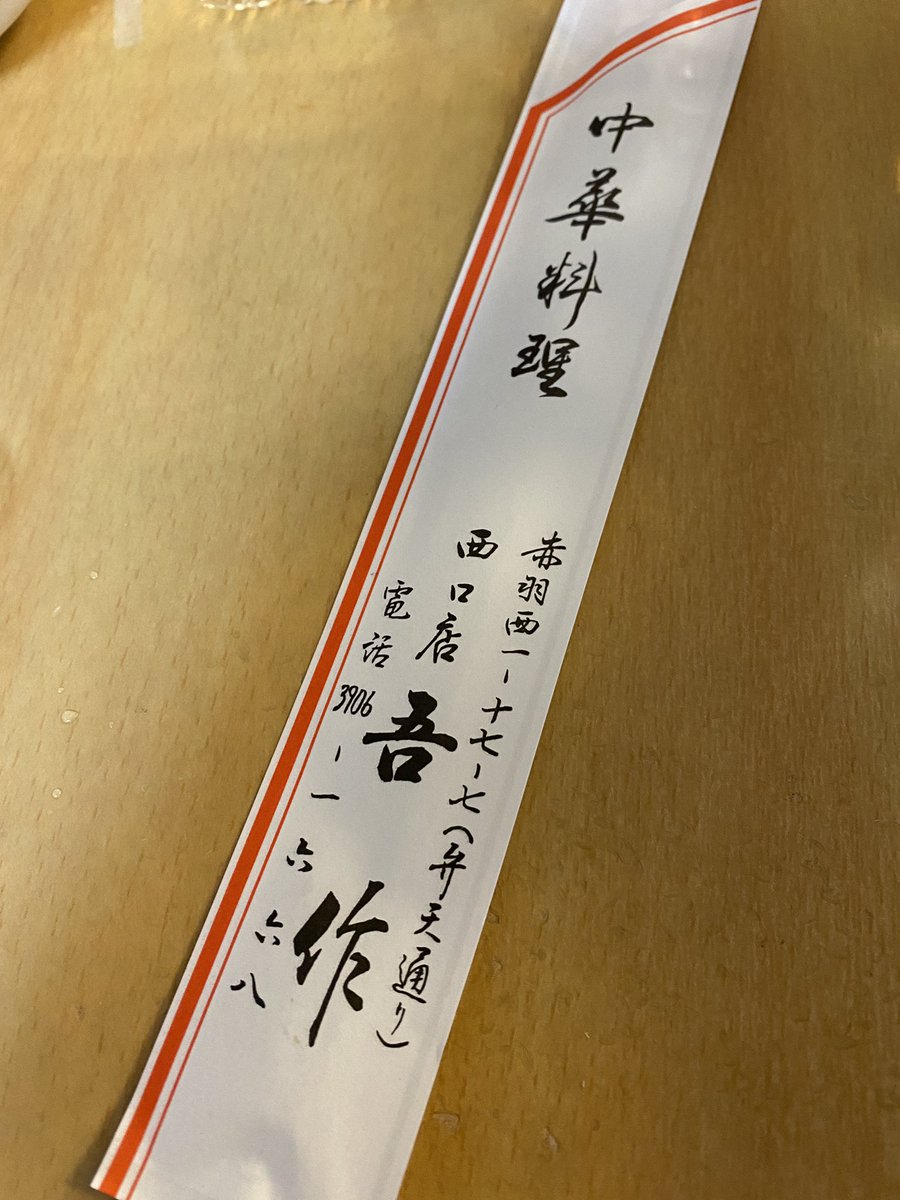 中華料理
赤羽西一-十七-七(弁天通り)
西口店 吾作
電話3906-一六六八